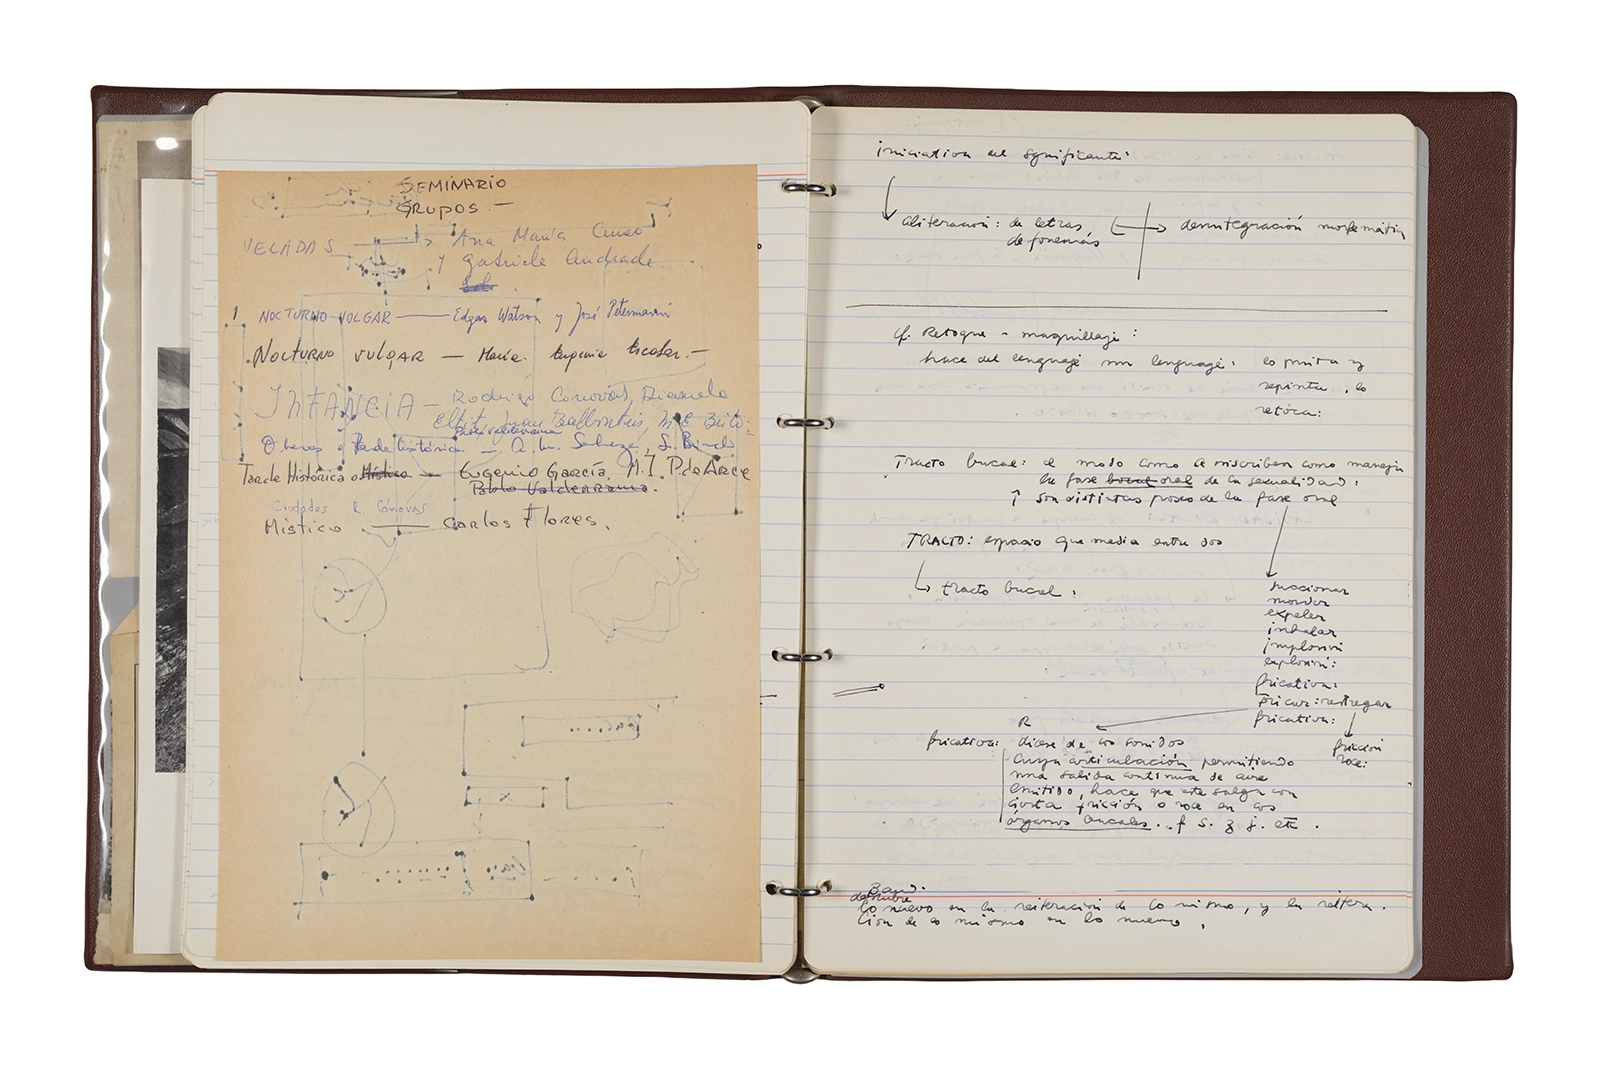 SEMINARIO
GRUPOS —
VELADAS — Ana María Cuneo
y Gabriela Andrade
1 NOCTURNO VULGAR — Edgar Watson y José Petermann
NOCTURNO VULGAR — María Eugenia Escobar.—
INFANCIA — Rodrigo Cánovas, Diamela
Eltit, Juan Balbontín, M. E. Brito
Pablo Valderrama
Tarde Histórica o Místico — Eugenio García, M.J. P. de Arce
Pablo Valderrama.
Ciudades R Cánovas
Místico — Carlos Flores.
iniciation del significante:
aliteración: de letras desintegración morfemática
de fonemas
Cf. Retoque - maquillaje:
hace del lenguaje un lenguaje: lo pinta y
repinta. lo
retoca:
Tracto bucal: el modo como se inscriben como manejan
la fase bucal oral de la sexualidad:
son distintas poses de la fase oral
TRACTO: espacio que media entre dos
tracto bucal:
succionar
morder
expeler
inhalar
implosión
explosión:
fricativa:
fricar: restregar
fricativa:
fricción
roce:
R
fricativa: dícese de los sonidos
cuya articulación permitiendo
una salida continua de aire
emitido, hace que este salga con
cierta fricción o roce en los
órganos bucales. f s. z j. etc.
descubre
lo nuevo en la reiteración de lo mismo, y la reitera-
ción de lo mismo en lo nuevo.